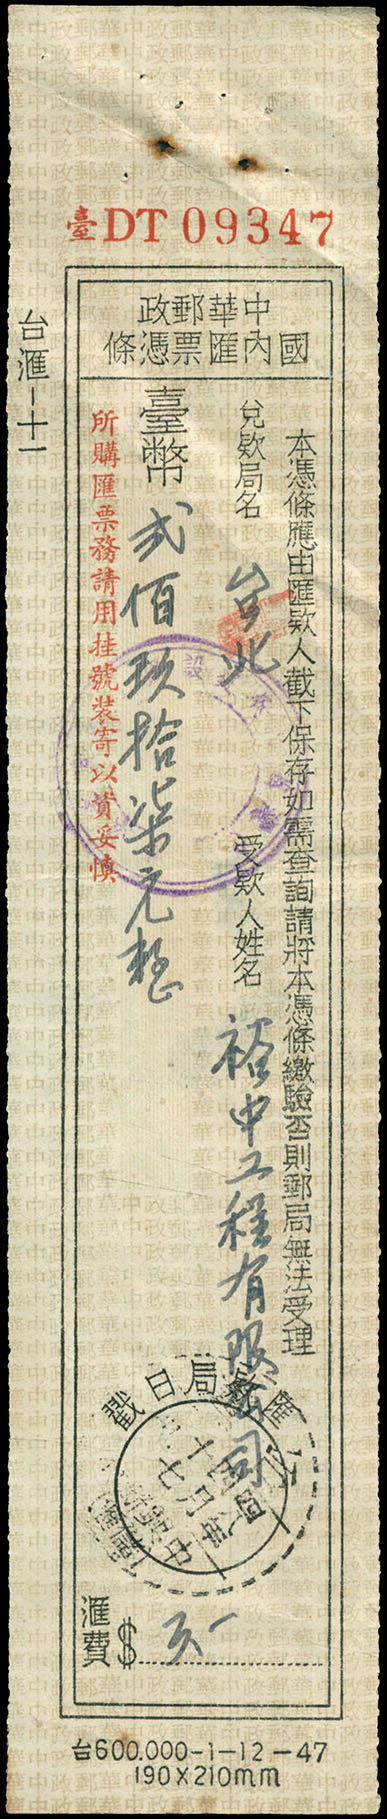 臺DT 09347
中華郵政
國內匯票憑條
台滙-十一
本憑條應由匯欵人截下保存如需查詢請將本憑條繳驗否則郵局無法受理
兌欵局名 台北 受欵人姓名 裕中工程有限公司
臺幣 弍佰玖拾柒元整
所購匯票務請用挂號裝寄以資妥慎
匯欵局日戳
四八年
十月
七
滙費 $
台600.000-1-12-47
190×210mm